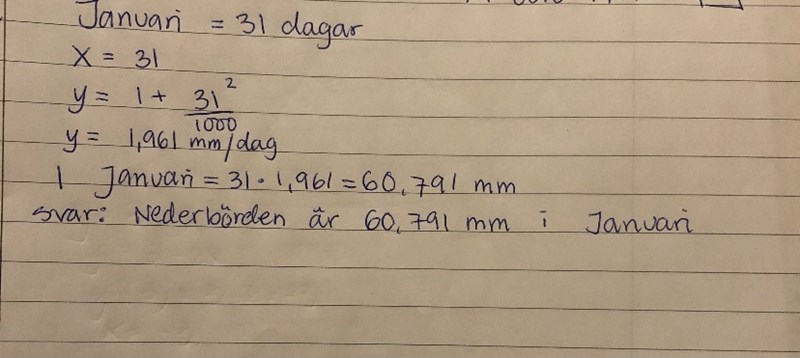 Januari = 31 dagar
x = 31
y = 1 + 31²/1000
y = 1,961 mm/dag
I Januari = 31 · 1,961 = 60,791 mm
svar: Nederbörden är 60,791 mm i Januari